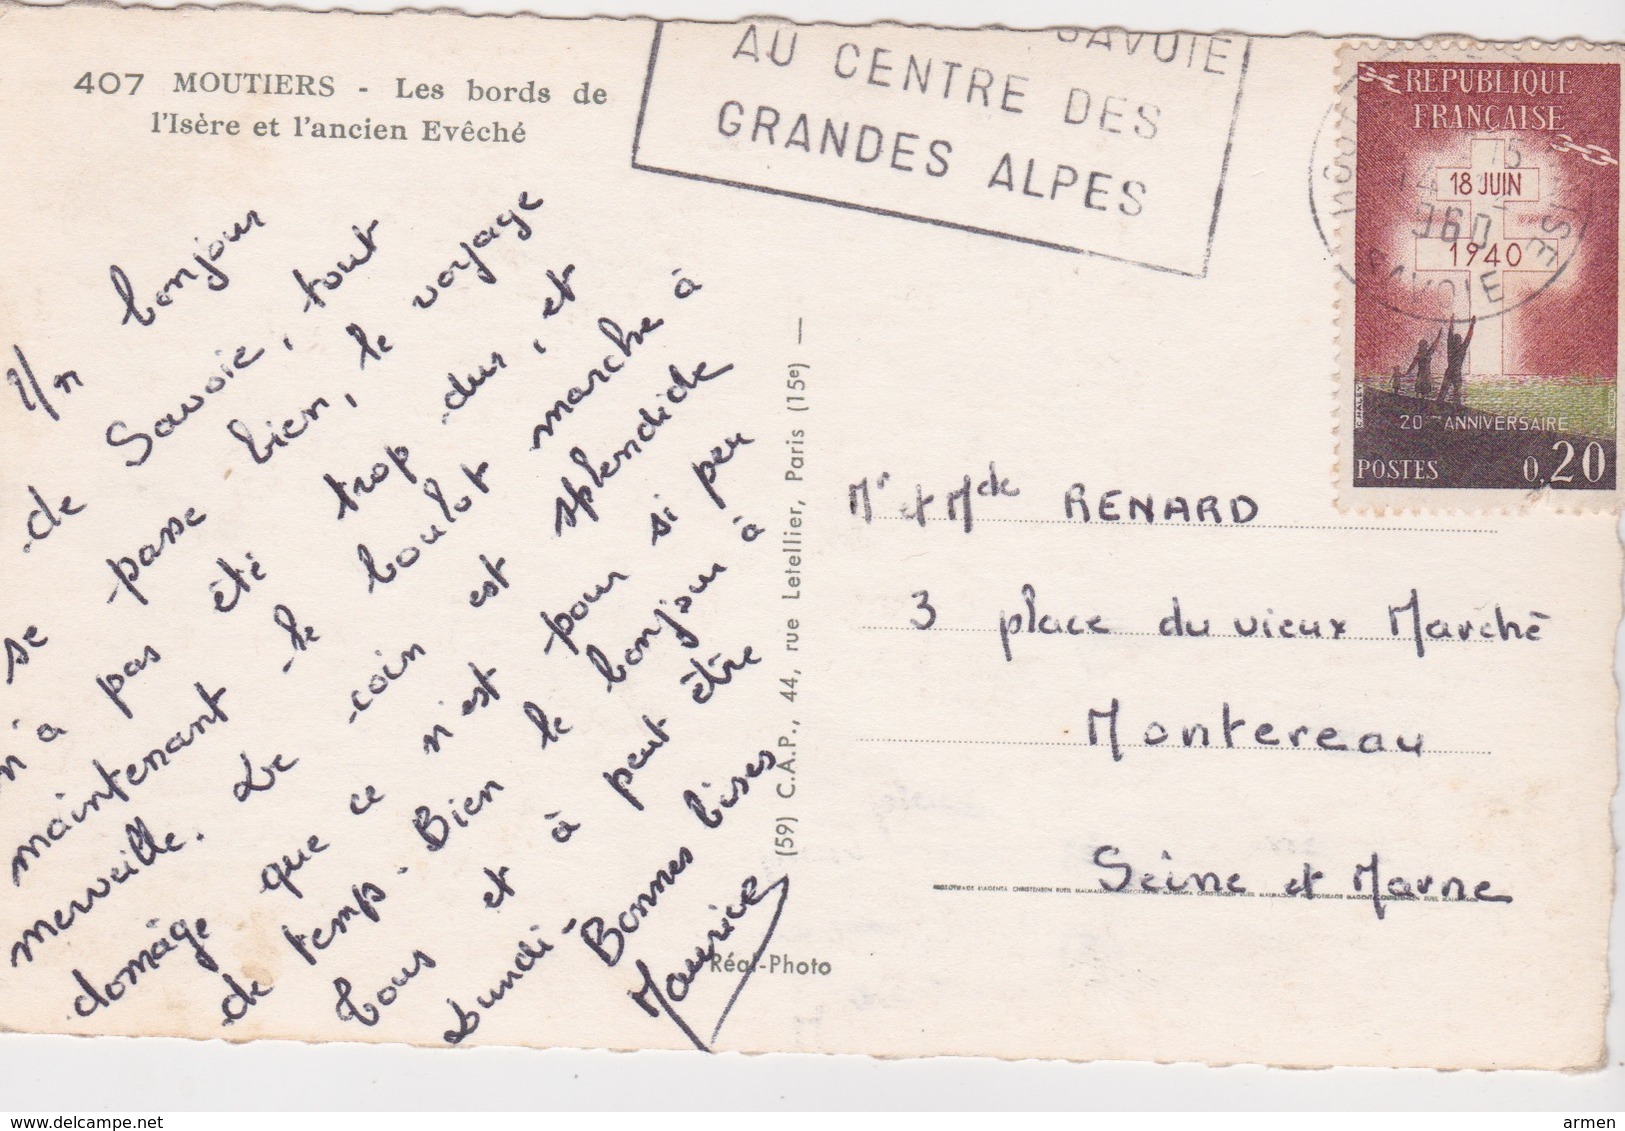 407 MOUTIERS - Les bords de
l'Isère et l'ancien Evêché
SAVOIE
AU CENTRE DES
GRANDES ALPES
REPUBLIQUE
FRANÇAISE
18 JUIN
1940
20 ANNIVERSAIRE
POSTES 0,20
SAVOIE
1960
bonjour
de Savoie, tout
se passe bien, le voyage
n'a pas été trop dur, et
maintenant le boulot marche à
merveille. Le coin est splendide
domage que ce n'est pour si peu
de temps. Bien le bonjour à
tous et à peut être
Lundi -
Bonnes bises
Maurice
(59) C.A.P., 44, rue Letellier, Paris (15e) —
Réal-Photo
Mr et Mde RENARD
3 place du vieux Marché
Montereau
Seine et Marne
armen